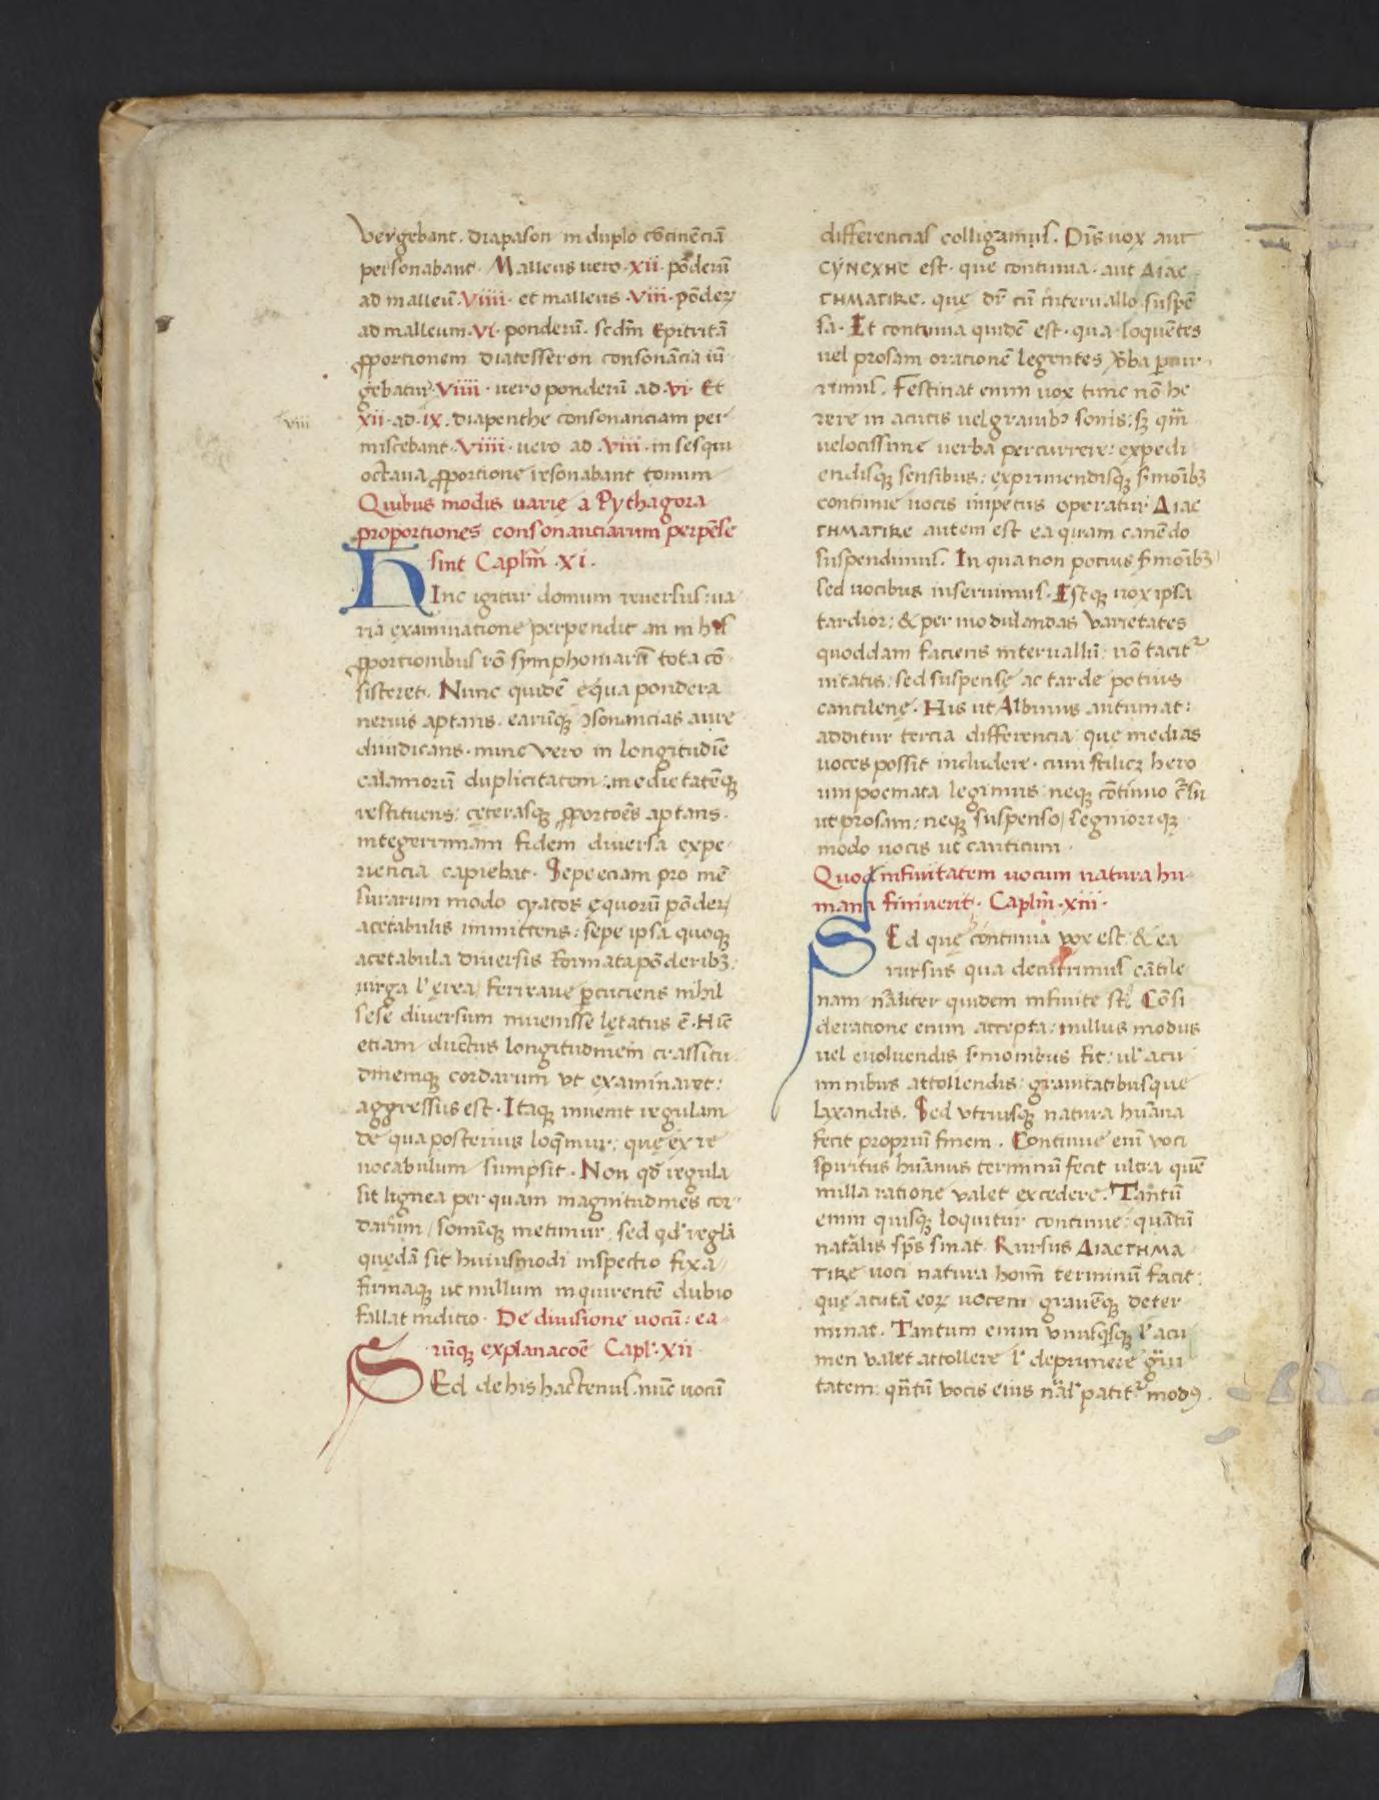 vergebant. diapason in duplo cōtinēciā
personabant. Malleus vero .xii. pōderū
ad malleū .viiii. et malleus .viii. pōdeꝝ
ad malleum .vi. ponderū. sedm̄ Epitritā
ꝓportionem diatesseron consonācia iū
gebatur. viiii. vero ponderū ad .vi. Et
viii
xii. ad .ix. diapenthe consonanciam per
miscebant. viiii. vero ad .viii. in sesqui
octaua ꝓportione resonabant tonum
Quibus modis uarię a Pythagora
proportiones consonanciarum perpēse
sint Caplm̄ .xi.
HInc igitur domum reuersus: ua
ria examinatione perpendit an in his
ꝓportionibus rō symphoniarū tota cō
sisteret. Nunc quidē equa pondera
neruis aptans. earūqꝫ ꝯsonancias aure
diiudicans. nunc vero in longitudīe
calamorū duplicitatem: medietatēqꝫ
restituens: cęterasqꝫ ꝓportoēs aptans.
integerrimam fidem diuersa expe
riencia capiebat. Sepe eciam pro mē
surarum modo cyatos ęquorū pōdeꝝ
acetabulis immittens: sepe ipsa quoqꝫ
acetabula diuersis formata pōderibꝫ.
uirga l' ęrea ferreaue ꝑcuciens nihil
sese diuersum inuenisse lętatus ē. Hīc
etiam ductus longitudinem crassitu
dinemqꝫ cordarum vt examinaret:
aggressus est. Itaqꝫ inuenit regulam
de qua posterius loqm̄ur: quę ex re
uocabulum sumpsit. Non qđ regula
sit lignea per quam magnitudines cor
darum / sonūqꝫ metimur. sed qđ regla
quędā sit huiusmodi inspectio fixa
firmaqꝫ ut nullum inquirentē dubio
fallat inditio. De diuisione uocū: ea
rūqꝫ explanacoē Capl'. xii
SEd de his hactenus. nūc uocū
differencias colligamus. Oīs uox aut
CYNEXHC est. que continua. aut ΔΙΑC
THMATIKE. quę dr̄ cū interuallo suspē
sa. Et continua quidē est. qua loquētes
uel prosam orationē legentes ꝟba ꝑcur
rimus. Festinat enim uox tunc nō he
rere in acutis uel grauibꝫ sonis: sꝫ qm̄
velocissime verba percurrere: expedi
endisqꝫ sensibus: exprimendisqꝫ s̄moībꝫ
continue uocis impetus operatur. ΔΙΑC
THMATIKE autem est ea quam canēdo
suspendimus. In qua non potius s̄moībꝫ
sed uocibus inseruimus. Estqꝫ uox ipsa
tardior: & per modulandas varietates
quoddam faciens interuallū: nō tacit
nitatis: sed suspensę ac tarde potius
cantilenę. His ut Albinus autumat:
additur tercia differencia: que medias
uoces possit includere. cum scilicꝫ hero
um poemata legimus: neqꝫ cōtinuo c̄su
ut prosam: neqꝫ suspenso / segnioriqꝫ
modo uocis ut canticum.
Quod infinitatem uocum natura hu
mana finiuerit. Caplm̄. xiii.
SEd que continua vox est. & ea
rursus qua decurrimus cātile
nam nāliter quidem infinite st̄. Cōsi
deratione enim accepta: nullus modus
uel euoluendis s̄monibus fit: ul' acu
minibus attollendis: grauitatibusque
laxandis. Sed vtriusqꝫ natura huāna
fecit propriū finem. Continue enī voci
spiritus huānus terminū fecit ultra quē
nulla ratione valet excedere. Tantū
enim quisqꝫ loquitur continue: quātū
natālis sps̄ sinat. Rursus ΔΙΑCTHMA
TIKE uoci natura hoīm terminū facit:
quę acutā eoꝝ uocem grauēqꝫ deter
minat. Tantum enim vnusqsqꝫ l' acu
men valet attollere l' deprimere graui
tatem: qn̄tū vocis eius nāl' patit modꝰ.